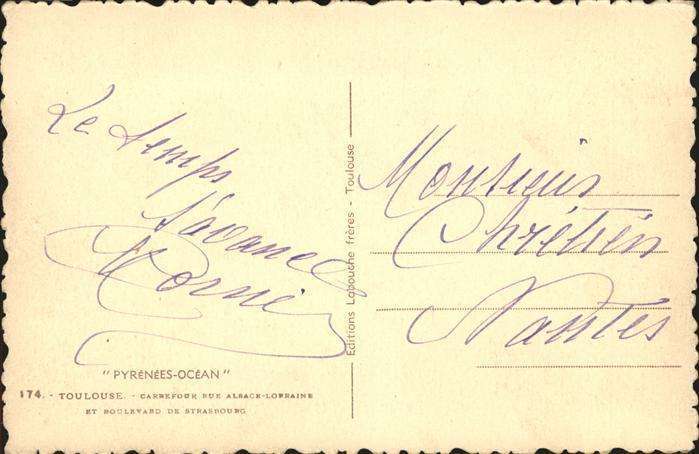 Le temps
s'avance
Editions Labouche frères - Toulouse
Monsieur
Chrétien
Nantes
"PYRÉNÉES-OCÉAN"
174. - TOULOUSE. - CARREFOUR RUE ALSACE-LORRAINE
ET BOULEVARD DE STRASBOURG